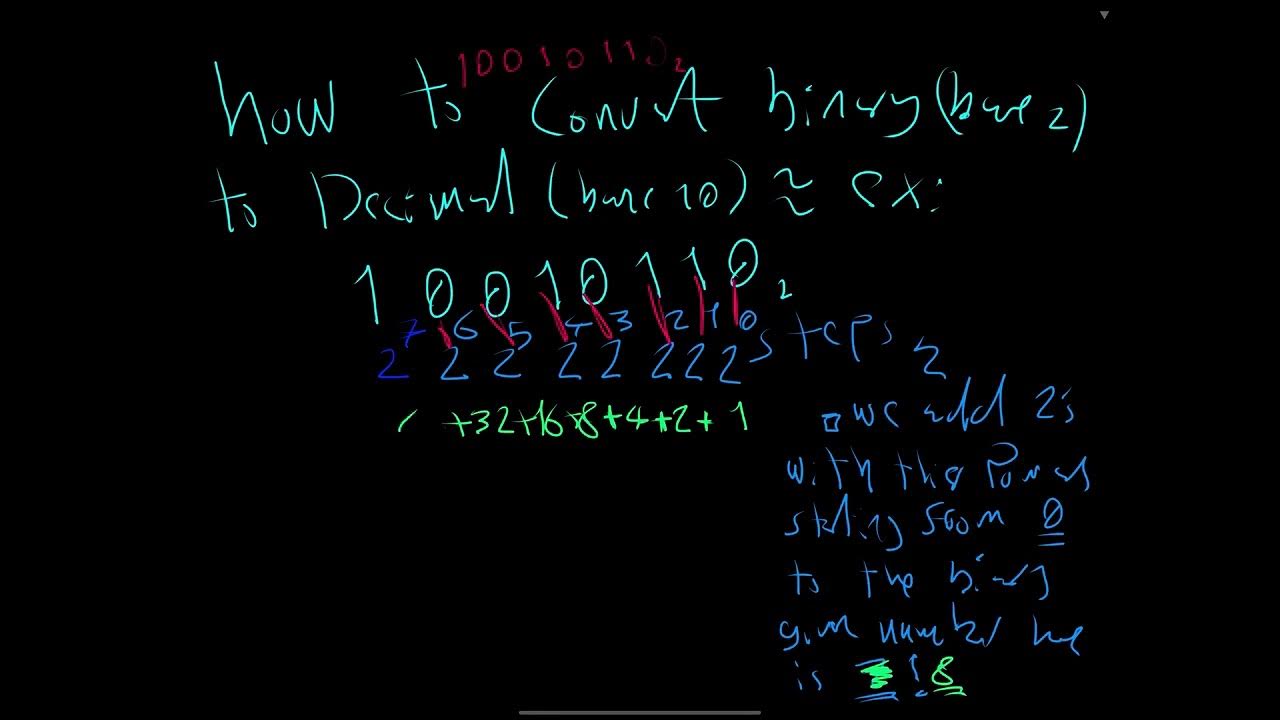 10010110₂
how to convert binary (base 2)
to Decimal (base 10) ≈ ex:
1 0 0 1 0 1 1 0 ₂
2⁷ 2⁶ 2⁵ 2⁴ 2³ 2² 2¹ 2⁰
+32+16+8+4+2+1
steps
we add 2's
with the Powers
starting from 0
to the binary
given number
is ! 8